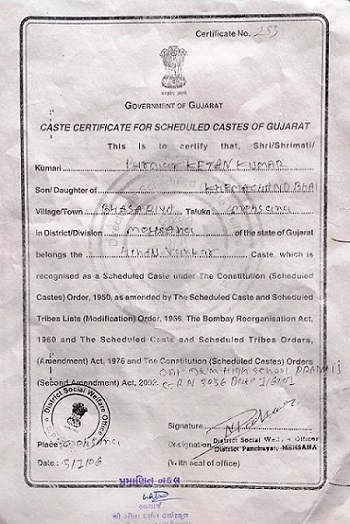 Certificate No. 253
GOVERNMENT OF GUJARAT
CASTE CERTIFICATE FOR SCHEDULED CASTES OF GUJARAT
This is to certify, that, Shri/Shrimati/
Kumari KETAN KUMAR
Son/Daughter of KHEMACHAND BHAI
Village/Town BHASARIYA Taluka Mehsana
in District/Division Mehsana of the state of Gujarat
belongs the Hindu Vankar Caste, which is
recognised as a Scheduled Caste under The Constitution (Scheduled
Castes) Order, 1950, as amended by The Scheduled Caste and Scheduled
Tribes Lists (Modification) Order, 1956. The Bombay Reorganisation Act,
1960 and The Scheduled Caste and Scheduled Tribes Orders,
(Amendment) Act, 1976 and The Constitution (Scheduled Castes) Orders
HIGH SCHOOL
(Second Amendment) Act, 2002. G.R.N 3056
District Social Welfare Office
Signature
Place: Mehsana
Designation District Social Welfare Officer
District Panchayat-MEHSANA
Date: 5/1/06 (With seal of office)
પ્રમાણિત નકલ
આચાર્ય